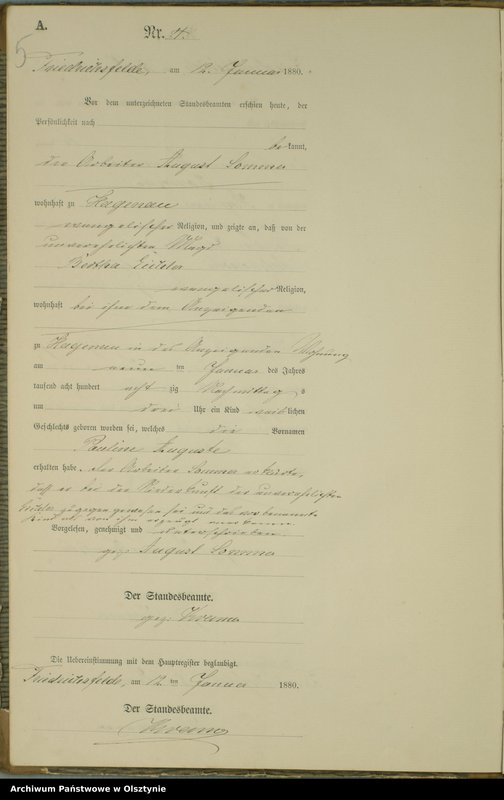 A.
Nr. 4.
5
Friedrichsfelde, am 12. Januar 1880.
Vor dem unterzeichneten Standesbeamten erschien heute, der
Persönlichkeit nach
be kannt,
der Arbeiter August
wohnhaft zu Hagenau
evangelischer Religion, und zeigte an, daß von der
unverehelichten Magd
Bertha
evangelischer Religion,
wohnhaft bei ihm dem Anzeigenden
zu Hagenau in des Anzeigenden Wohnung
am neun ten Januar des Jahres
tausend acht hundert acht zig Nachmittag s
um drei Uhr ein Kind weib lichen
Geschlechts geboren worden sei, welches die Vornamen
Pauline Auguste
erhalten habe. Der Arbeiter erklärte,
daß er bei der Niederkunft der unverehelichten
zugegen gewesen sei und das
Kind als von ihm erzeugt anerkenne.
Vorgelesen, genehmigt und unterschrieben
gez. August
Der Standesbeamte.
gez.
Die Uebereinstimmung mit dem Hauptregister beglaubigt.
Friedrichsfelde, am 12 ten Januar 1880.
Der Standesbeamte.
Archiwum Państwowe w Olsztynie